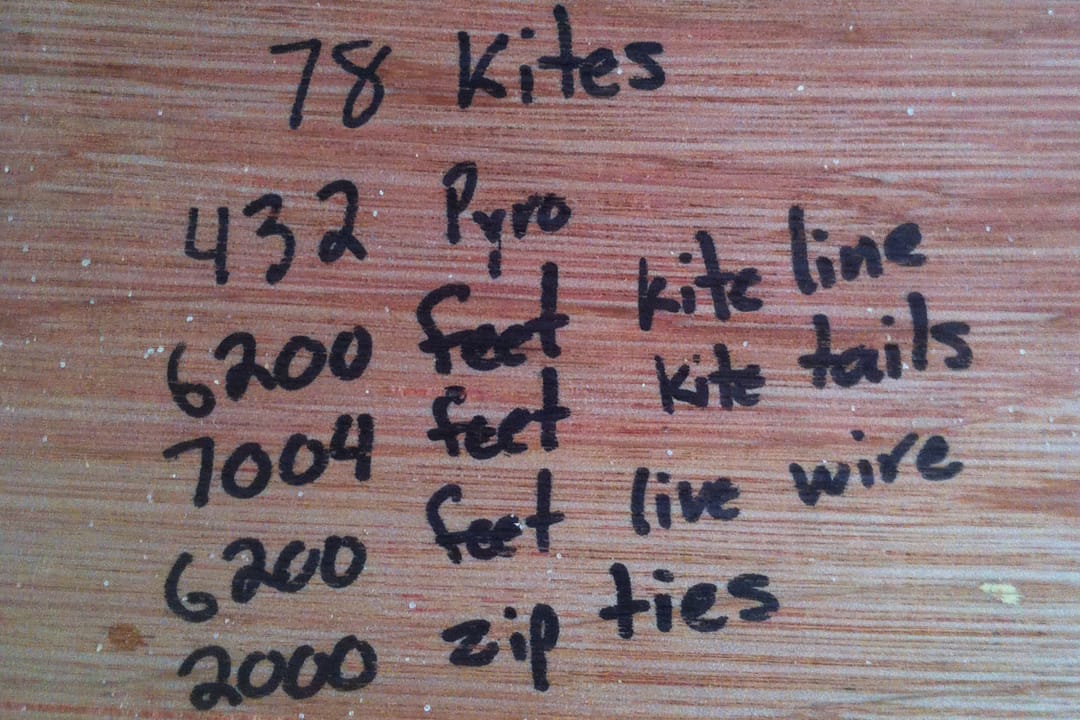 78 Kites
432 Pyro
6200 feet kite line
7004 feet kite tails
6200 feet live wire
2000 zip ties